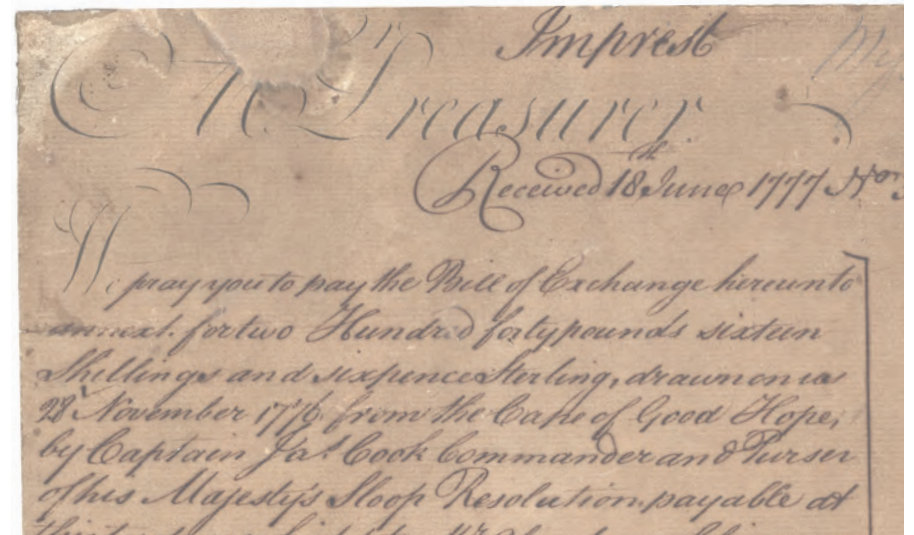 Imprest
The Treasurer
Received 18th June 1777 No
We pray you to pay the Bill of Exchange hereunto
annext. for two Hundred forty pounds sixteen
Shillings and sixpence Sterling, drawn on us
28 November 1776 from the Cape of Good Hope,
by Captain Jas. Cook Commander and Purser
of his Majesty's Sloop Resolution payable at